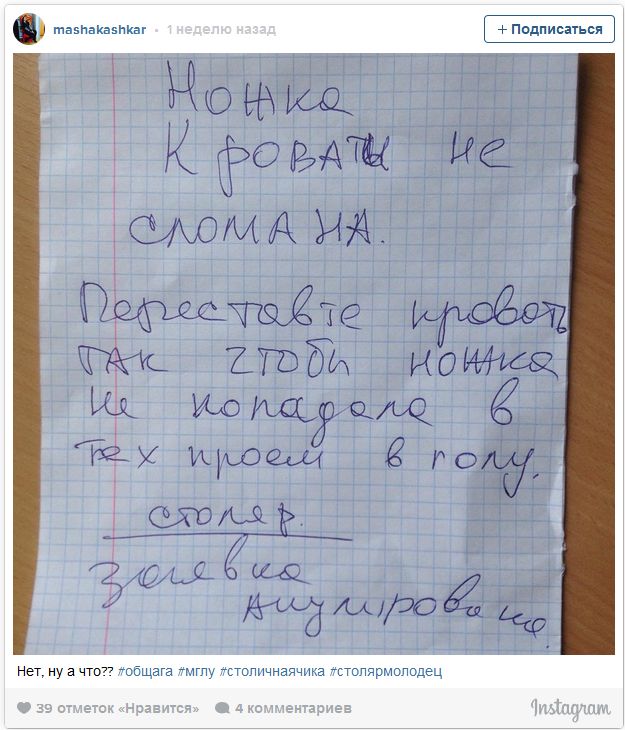 mashakashkar • 1 неделю назад
+ Подписаться
Ножка
Кровати не
сломана.
Переставте кровать
так чтоби ножка
не попадала в
тех проем в полу.
столяр.
Заявка
анулирована.
Нет, ну а что?? #общага #мглу #столичнаячика #столярмолодец
39 отметок «Нравится» 4 комментариев
Instagram